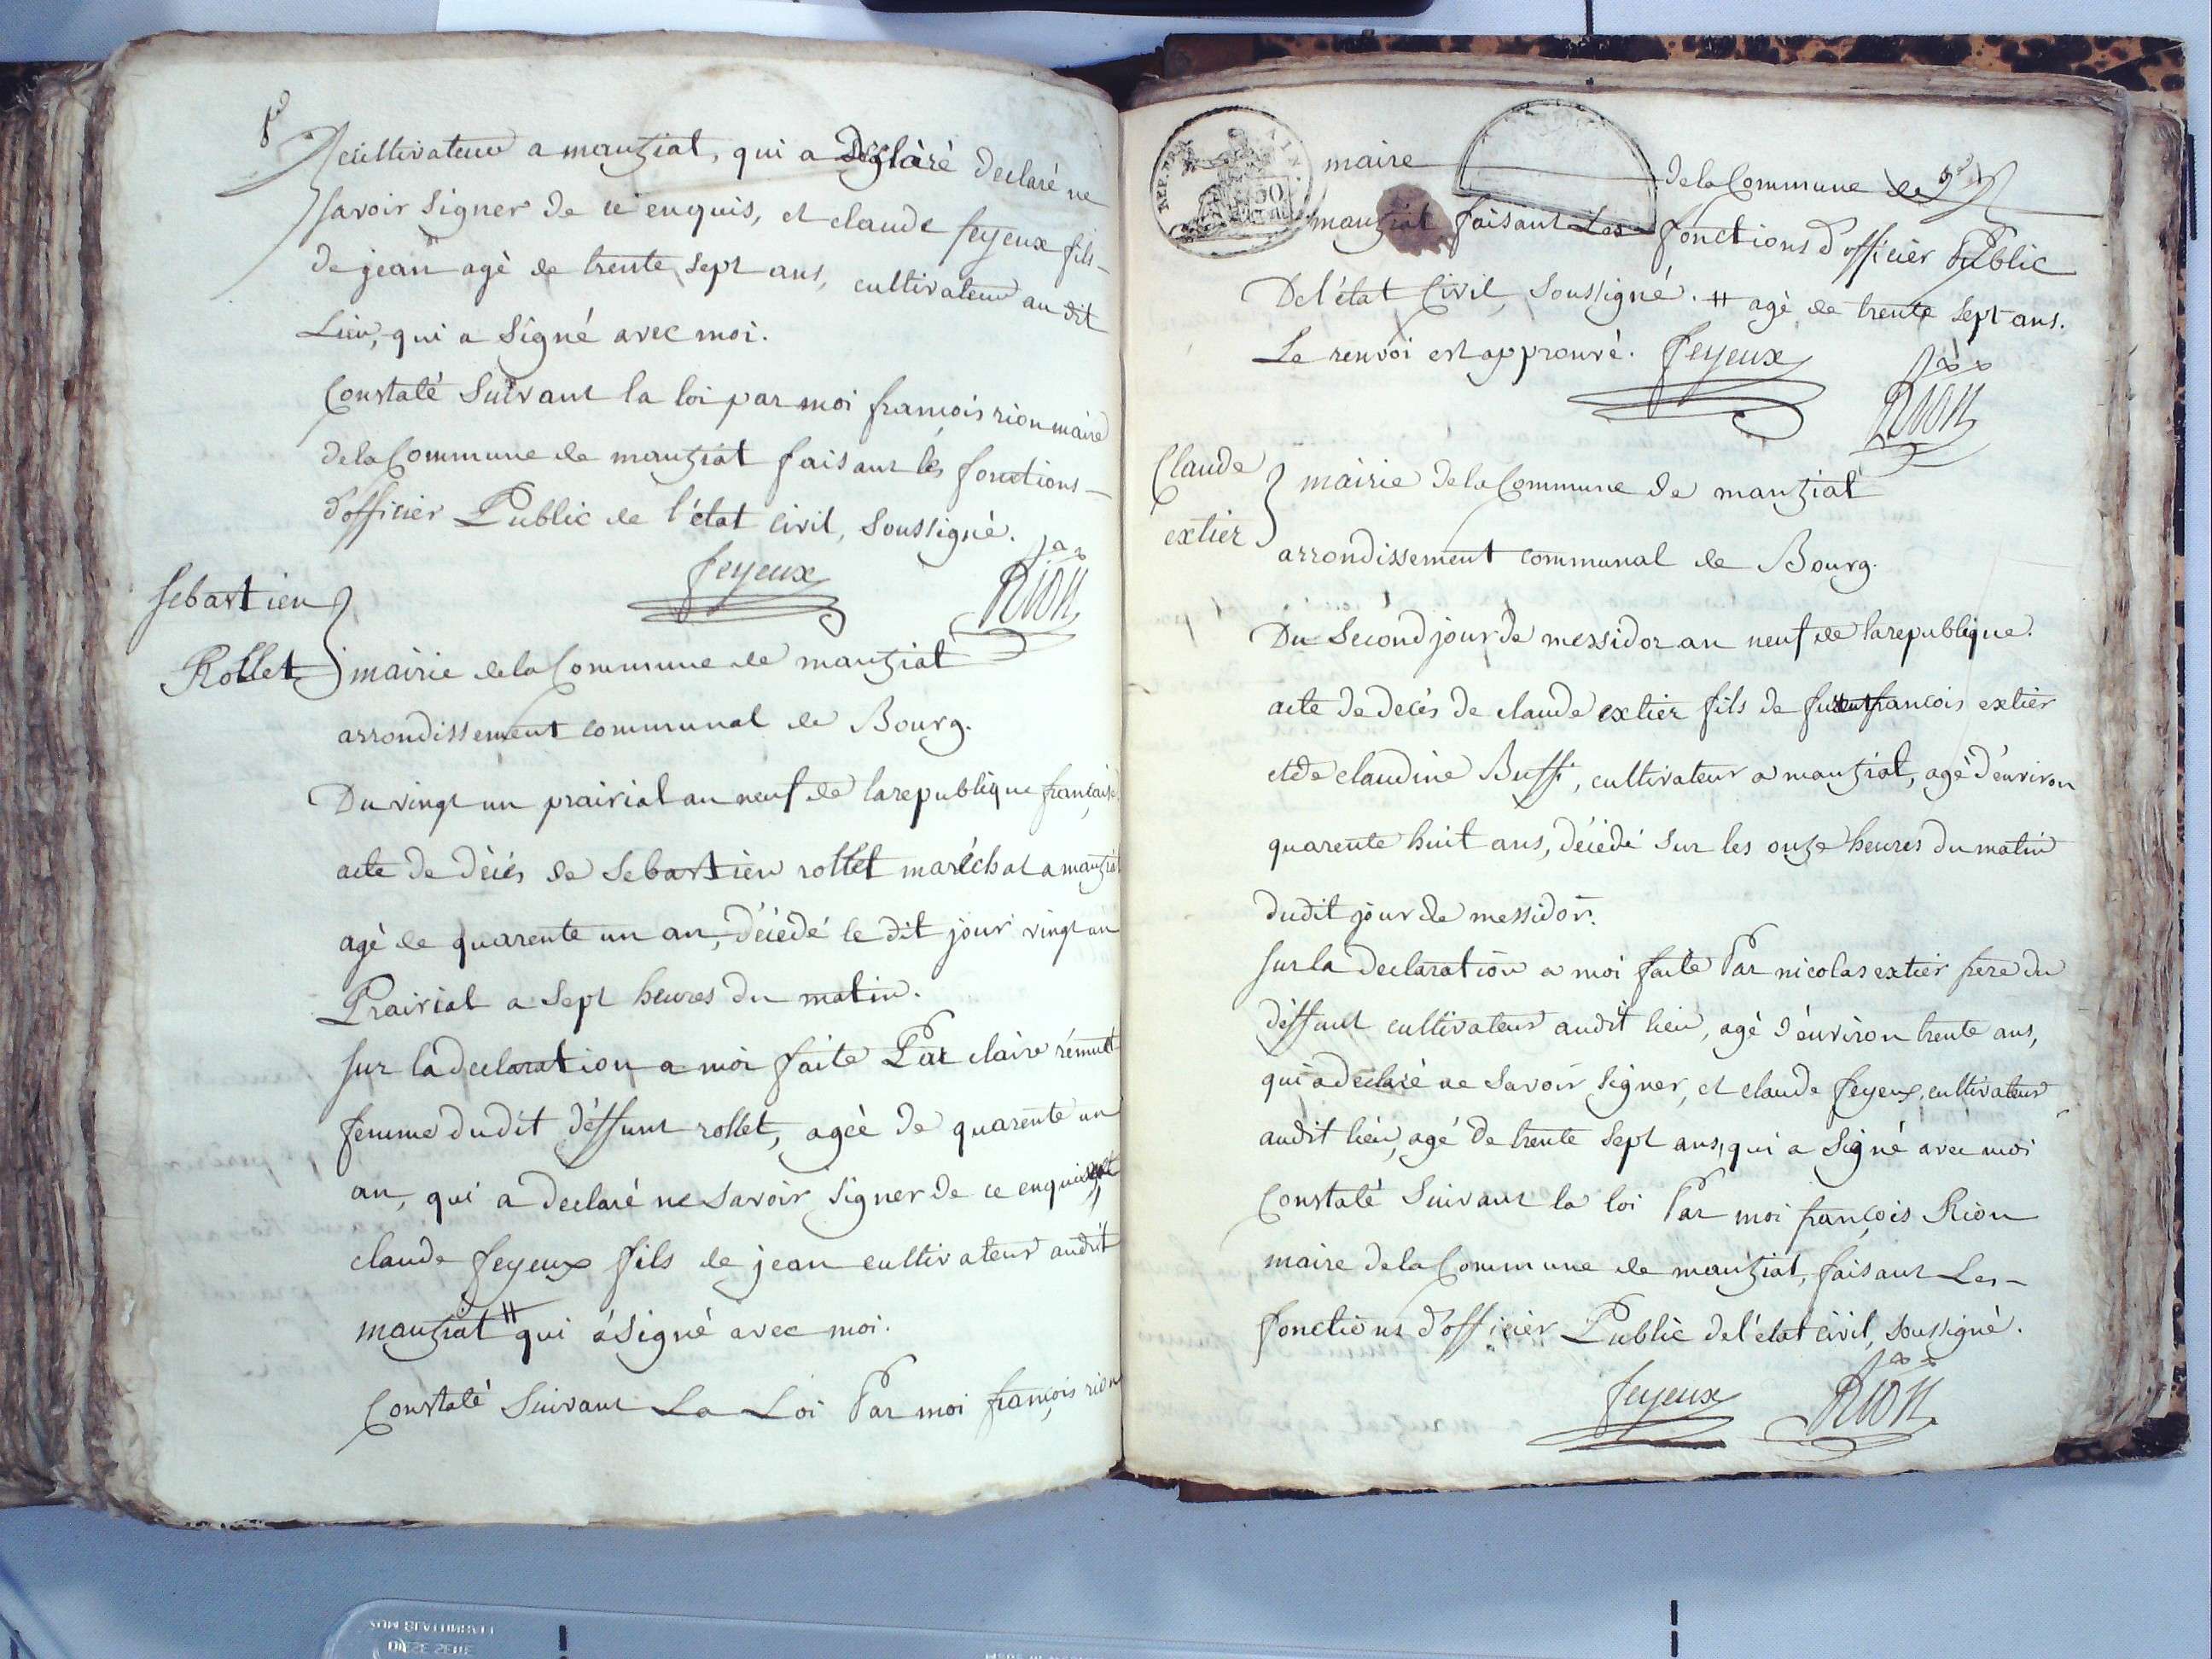 cultivateur a manziat, qui a declaré ne
savoir signer de ce enquis, et claude feyeux fils
de jean agé de trente sept ans, cultivateur au dit
Lieu, qui a signé avec moi.
Constaté suivant la loi par moi françois rion maire
de la Commune de manziat faisant les fonctions
d'officier Public de l'état civil, soussigné.
feyeux Rion
Sebastien
Rollet
mairie de la Commune de manziat
arrondissement communal de Bourg.
Du vingt un prairial an neuf de la republique française
acte de décés de Sebastien rollet maréchal a manziat
agé de quarente un an, décédé le dit jour vingt un
Prairial a sept heures du matin.
sur la declaration a moi faite Par claire
femme dudit déffunt rollet, ageé de quarente un
an, qui a declaré ne savoir signer de ce enquis et
claude feyeux fils de jean cultivateur audit
manziat # qui a signé avec moi.
Constaté Suivant La Loi Par moi françois rion
REP. FRA
AIN
50
maire de la Commune de
manziat faisant Les fonctions d'officier Public
De l'état Civil, soussigné. # agé de trente sept ans.
Le renvoi est approuvé. feyeux
Rion
Claude
extier
mairie de la Commune de manziat
arrondissement communal de Bourg.
Du Second jour de messidor an neuf de la republique.
acte de decés de claude extier fils de françois extier
et de claudine Buffi, cultivateur a manziat, agé d'environ
quarente huit ans, décédé sur les onze heures du matin
dudit jour de messidor.
sur la declaration a moi faite Par nicolas extier frere du
déffunt cultivateur audit lieu, agé d'environ trente ans,
qui a declaré ne savoir signer, et claude feyeux, cultivateur
audit lieu, agé de trente sept ans, qui a signé avec moi
Constaté suivant la loi Par moi françois Rion
maire de la Commune de manziat, faisant Les
fonctions d'officier Public de l'état civil, soussigné.
feyeux Rion